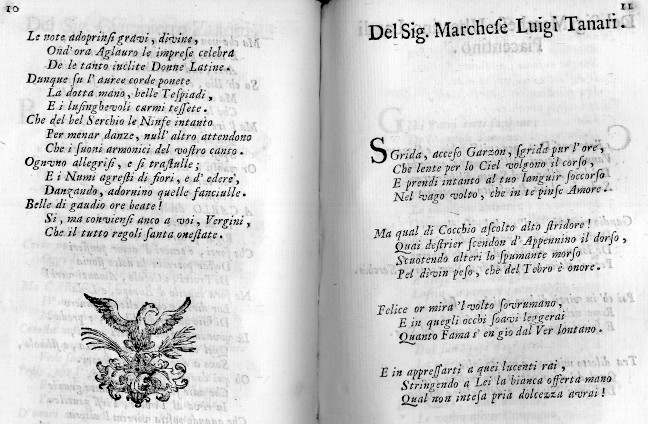 10
Le note adoprinſi gravi, divine,
Ond'ora Aglauro le impreſe celebra
De le tanto inclite Donne Latine.
Dunque ſu l'auree corde ponete
La dotta mano, belle Teſpiadi,
E i luſinghevoli carmi teſſete.
Che del bel Serchio le Ninfe intanto
Per menar danze, null'altro attendono
Che i ſuoni armonici del voſtro canto.
Ognuno allegriſi, e ſi traſtulle;
E i Numi agreſti di fiori, e d'edere,
Danzando, adornino quelle fanciulle.
Belle di gaudio ore beate!
Si, ma convienſi anco a voi, Vergini,
Che il tutto regoli ſanta oneſtate.
11
Del Sig. Marcheſe Luigi Tanari.
SGrida, acceſo Garzon, ſgrida pur l'ore,
Che lente per lo Ciel volgono il corſo,
E prendi intanto al tuo languir ſoccorſo
Nel vago volto, che in te pinſe Amore.
Ma qual di Cocchio aſcolto alto ſtridore!
Quai deſtrier ſcendon d'Appennino il dorſo,
Scuotendo alteri lo ſpumante morſo
Pel divin peſo, che del Tebro è onore.
Felice or mira 'l volto ſovrumano,
E in quegli occhi ſoavi leggerai
Quanto Fama s'en gio dal Ver lontano.
E in appreſſarti a quei lucenti rai,
Stringendo a Lei la bianca offerta mano
Qual non inteſa pria dolcezza avrai!